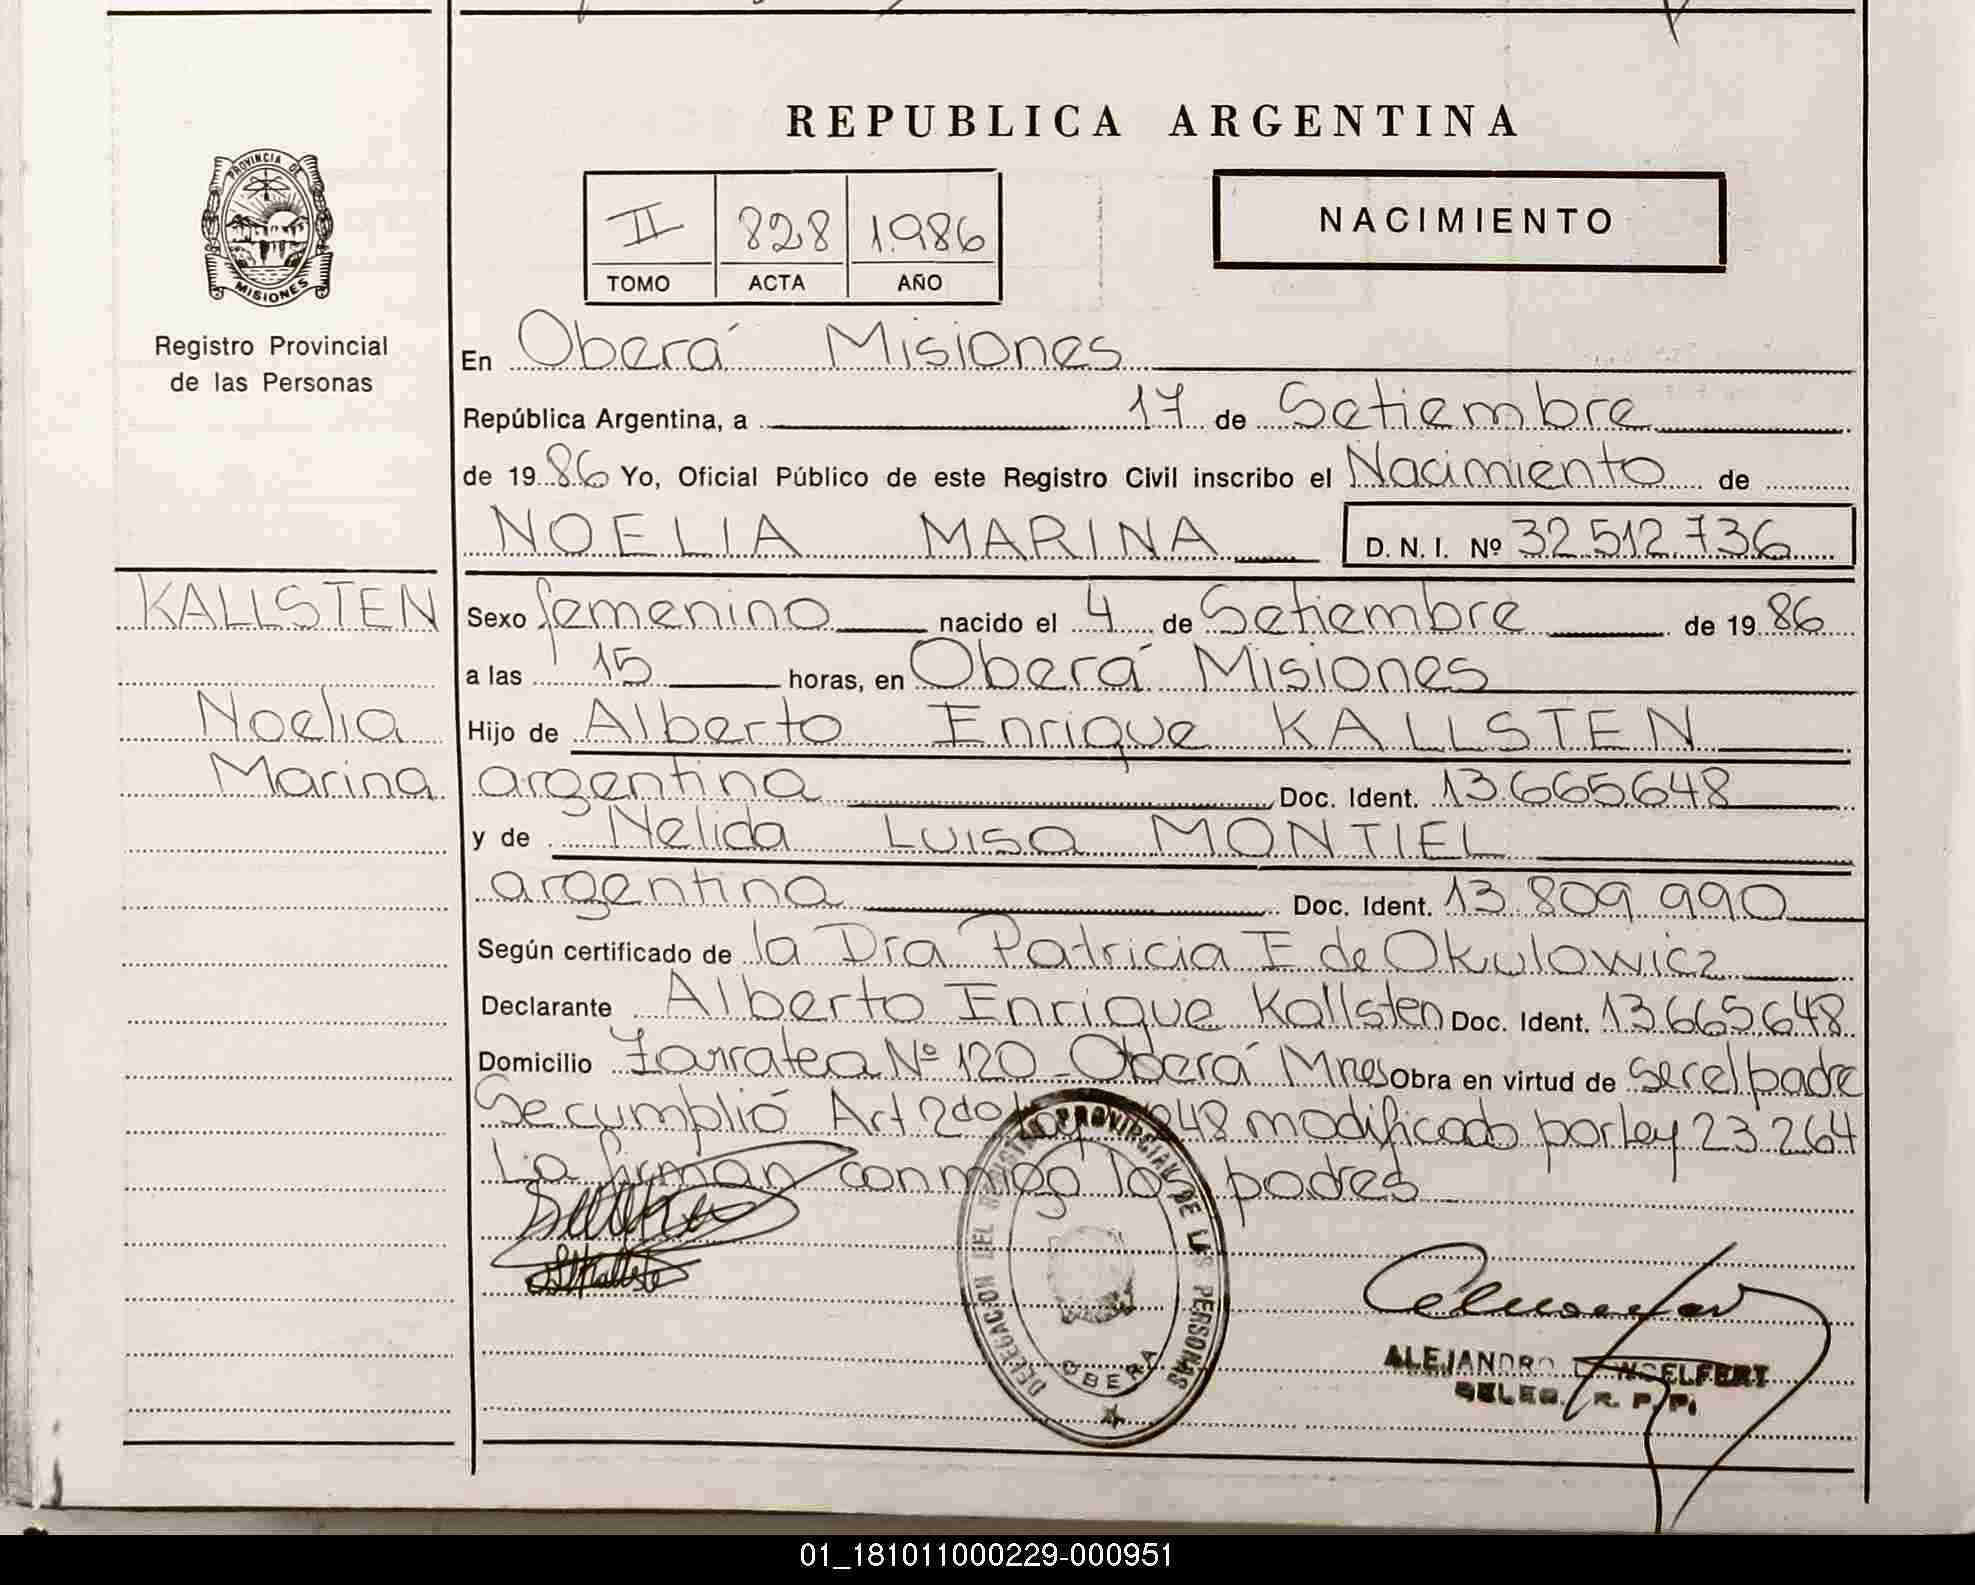 REPUBLICA ARGENTINA
PROVINCIA DE
MISIONES
Registro Provincial
de las Personas
II 828 1.986
TOMO ACTA AÑO
NACIMIENTO
En Oberá Misiones
República Argentina, a 17 de Setiembre
de 1986 Yo, Oficial Público de este Registro Civil inscribo el Nacimiento de
NOELIA MARINA D. N. I. Nº 32 512.736
KALLSTEN
Noelia
Marina
Sexo femenino nacido el 4 de Setiembre de 1986
a las 15 horas, en Oberá Misiones
Hijo de Alberto Enrique KALLSTEN
argentina Doc. Ident. 13.665.648
y de Nelida Luisa MONTIEL
argentina Doc. Ident. 13.809.990
Según certificado de la Dra Patricia E de Okulowicz
Declarante Alberto Enrique Kallsten Doc. Ident. 13.665.648
Domicilio Zarratea Nº 120 - Oberá Mnes Obra en virtud de ser el padre
Se cumplió Art 2do 48 modificado por ley 23.264
La firman conmigo los padres
DELEGACION DEL REGISTRO PROVINCIAL DE LAS PERSONAS
OBERA
ALEJANDRO
DELEG. R. P. P.
01_181011000229-000951